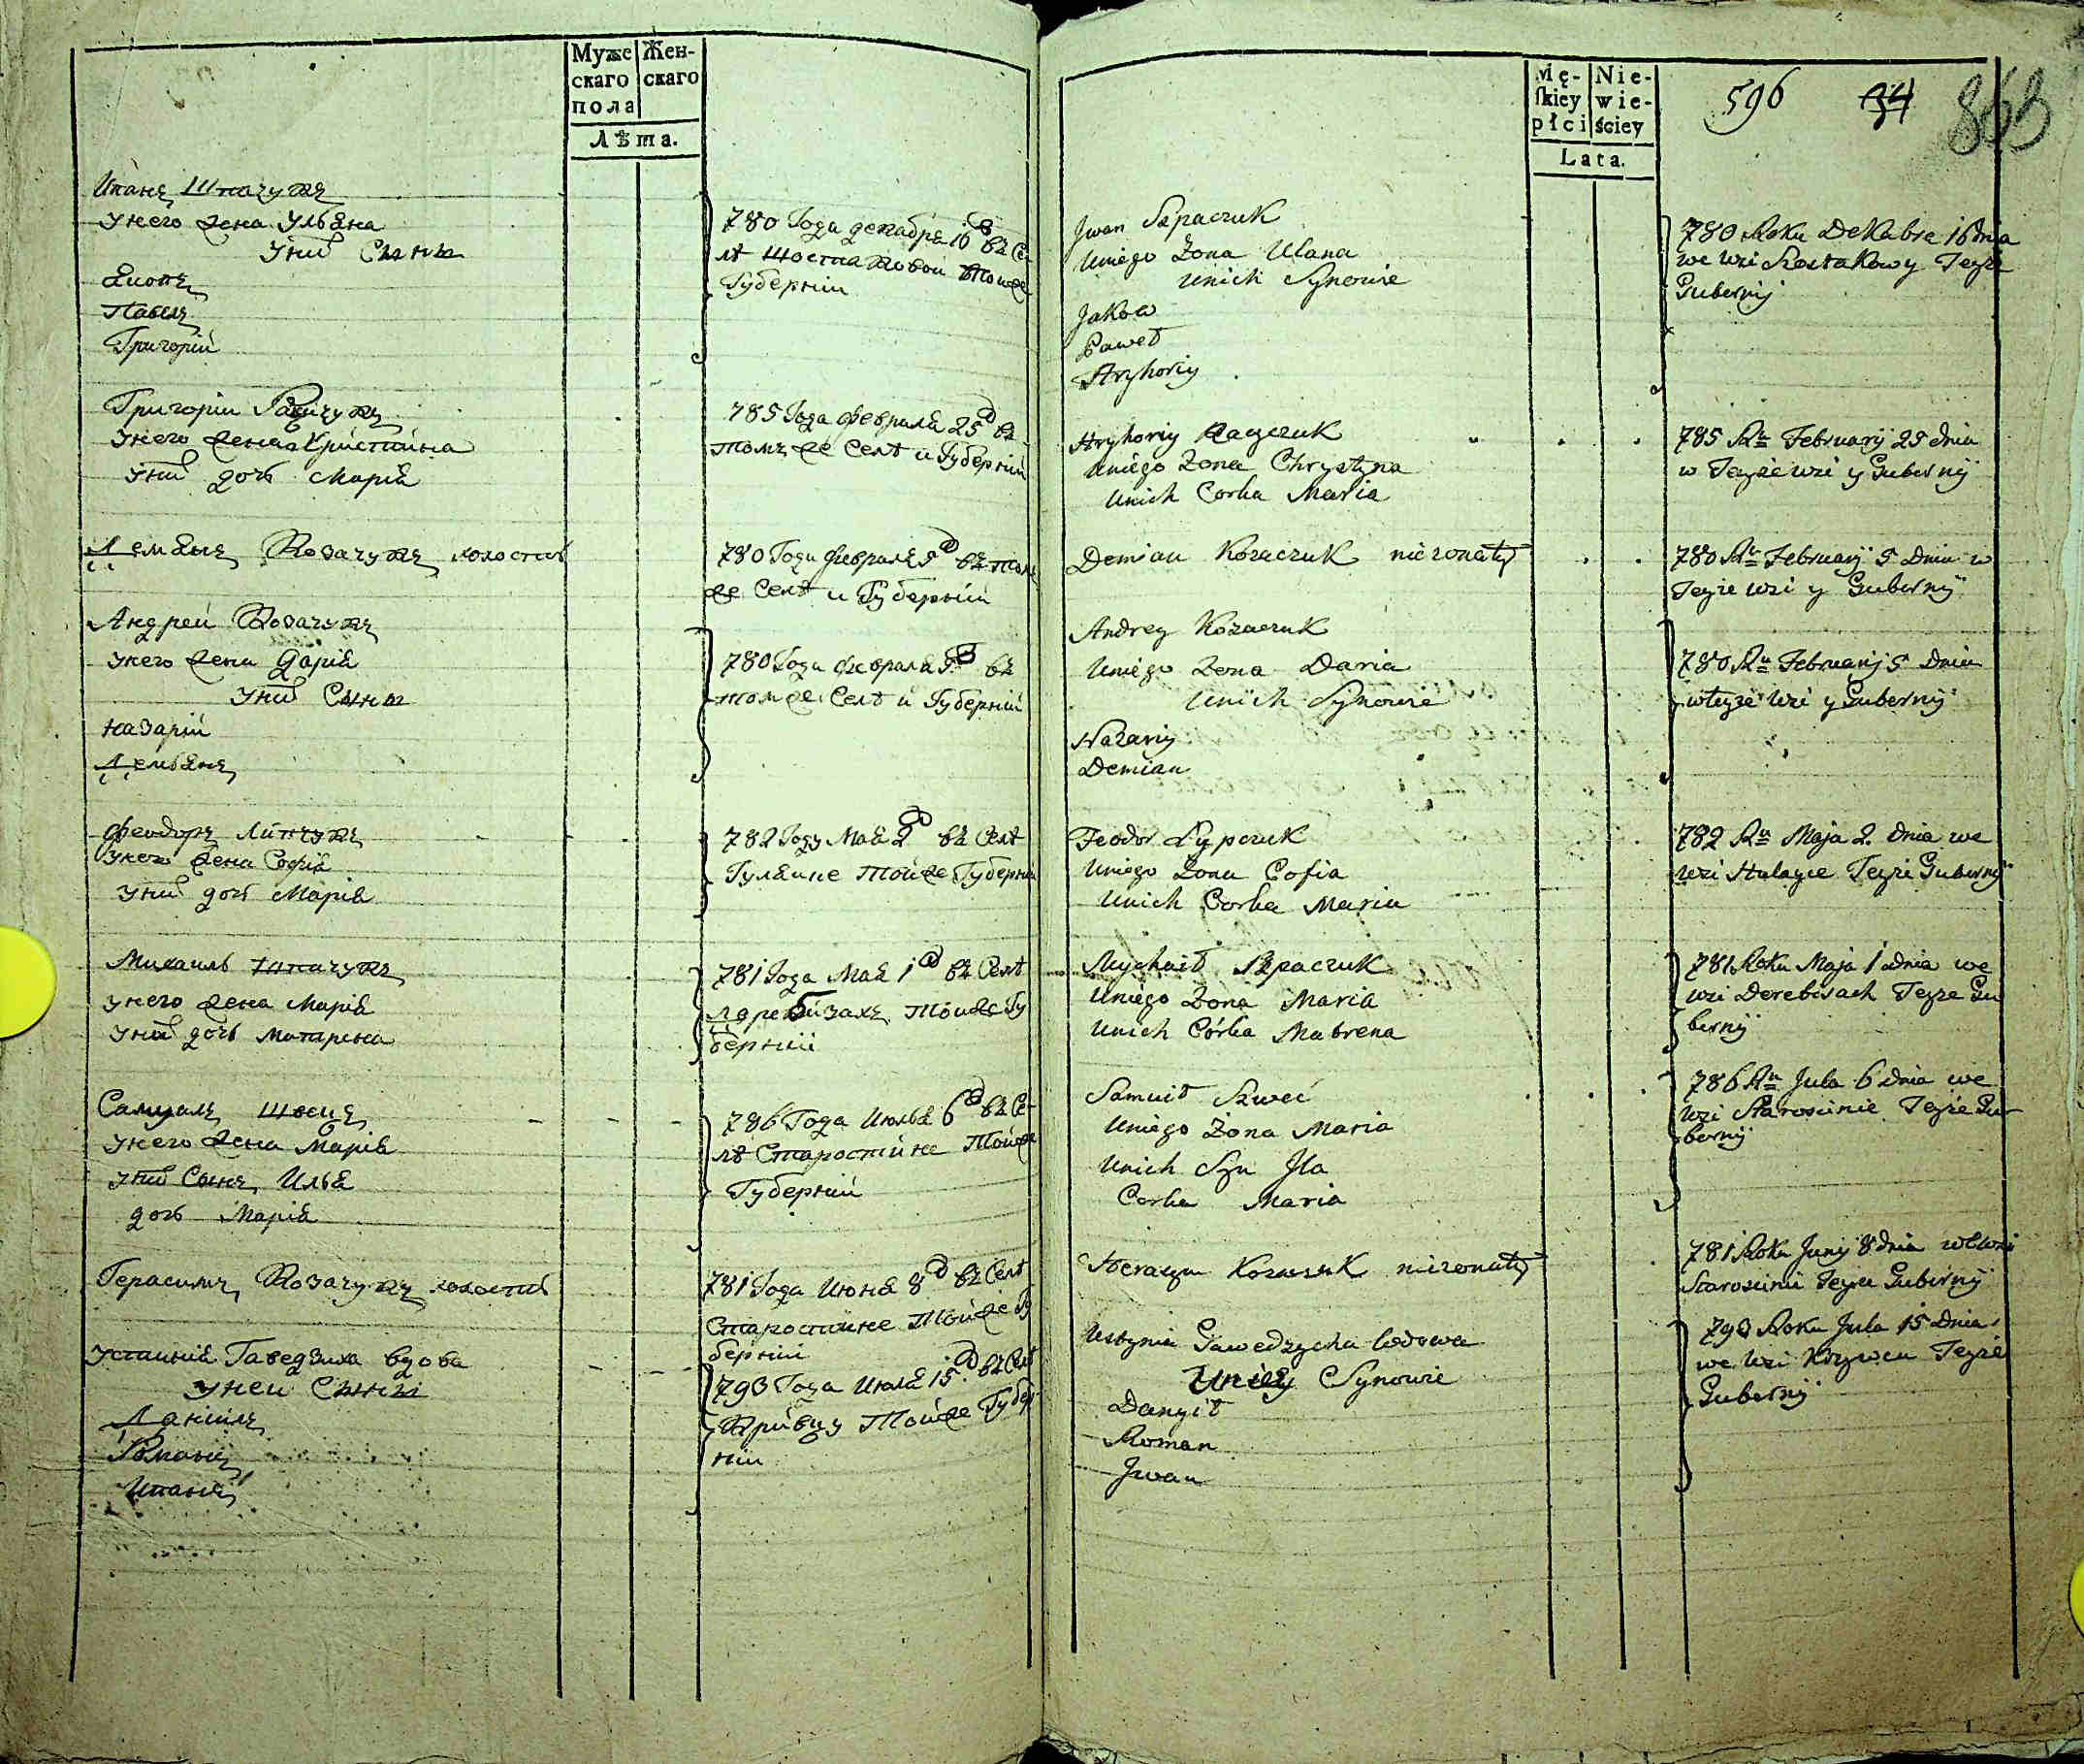 Муже
скаго
пола
Жен-
скаго
Лѣта.
Иванъ Шпачукъ
унего жена Ульяна
уних Сыны
Яковъ
Павелъ
Григорій
780 Года декабря 16 д въ Се-
лѣ Шостаковой тойже
Губерніи
Григорій
унего жена Христина
уних дочь Марія
785 Года февраля 25 д въ
томъ же Селѣ и Губерніи
Демьянъ Козачукъ холостый
780 Года февраля 5 д въ том
же Селѣ и Губерніи
Андрей Козачукъ
унего жена Дарія
уних Сыны
Назарій
Демьянъ
780 Года февраля 5 д въ
томже Селѣ и Губерніи
Феодоръ Липчукъ
унего жена Софія
уних дочь Марія
782 Году Мая 2 д въ Селѣ
Гуляинке тойже Губерніи
Михаилъ Шпачукъ
унего жена Марія
уних дочь Матрена
781 Года Мая 1 д въ Селѣ
Деребизахъ тойже Гу
берніи
Самуилъ Швецъ
унего жена Марія
уних Сынъ Илья
дочь Марія
786 Года Июля 6 д въ Се-
лѣ Старостинке тойже
Губерніи
Герасимъ Козачукъ холостый
781 Года Июня 8 д въ Селѣ
Старостинке тойже Гу
берніи
Устинія Гаведзиха вдова
уней Сыны
Даніилъ
Романъ
Иванъ
793 Года Июля 15 д въ Селѣ
Кривцу тойже Губер
ніи
Mę-
skiey
płci
Nie-
wie-
ściey
Lata.
596 34 863
Jwan Szpaczuk
Uniego Żona Ulana
Unich Synowie
Jakow
Paweł
Hryhoriy
780 Roku Dekabra 16 dnia
we wsi Szostakowy Teyże
Gubernij
Hryhoriy
Uniego Żona Chrystyna
Unich Corka Maria
785 Ru February 25 dnia
w Teyże wsi y Gubernij
Demian Kozaczuk nieżonaty
780 Ru February 5 Dnia w
Teyże wsi y Gubernij
Andrey Kozaczuk
Uniego Żona Daria
Unich Synowie
Nazariy
Demian
780 Ru February 5 Dnia
wteyże wsi y Gubernij
Feodor Łypczuk
Uniego Żona Cofia
Unich Corka Maria
782 Ru Maja 2. dnia we
wsi Hulayce Teyże Gubernij
Mychaił Szpaczuk
Uniego Żona Maria
Unich Córka Matrena
781 Roku Maja 1 dnia we
wsi Derebisach Teyże Gu
bernij
Samuił Szweć
Uniego Żona Maria
Unich Syn Jla
Corka Maria
786 Ru Jula 6 dnia we
wsi Staroscinie Teyże Gu-
bernij
Herasym Kozaczuk nieżonaty
781 Roku Juny 8 dnia wewsi
Staroscinie Teyże Gubernij
Ustynia Gawedzycha wdowa
Uniey Synowie
Danyił
Roman
Jwan
793 Roku Jula 15 Dnia
we wsi Krzywcu Teyże
Gubernij